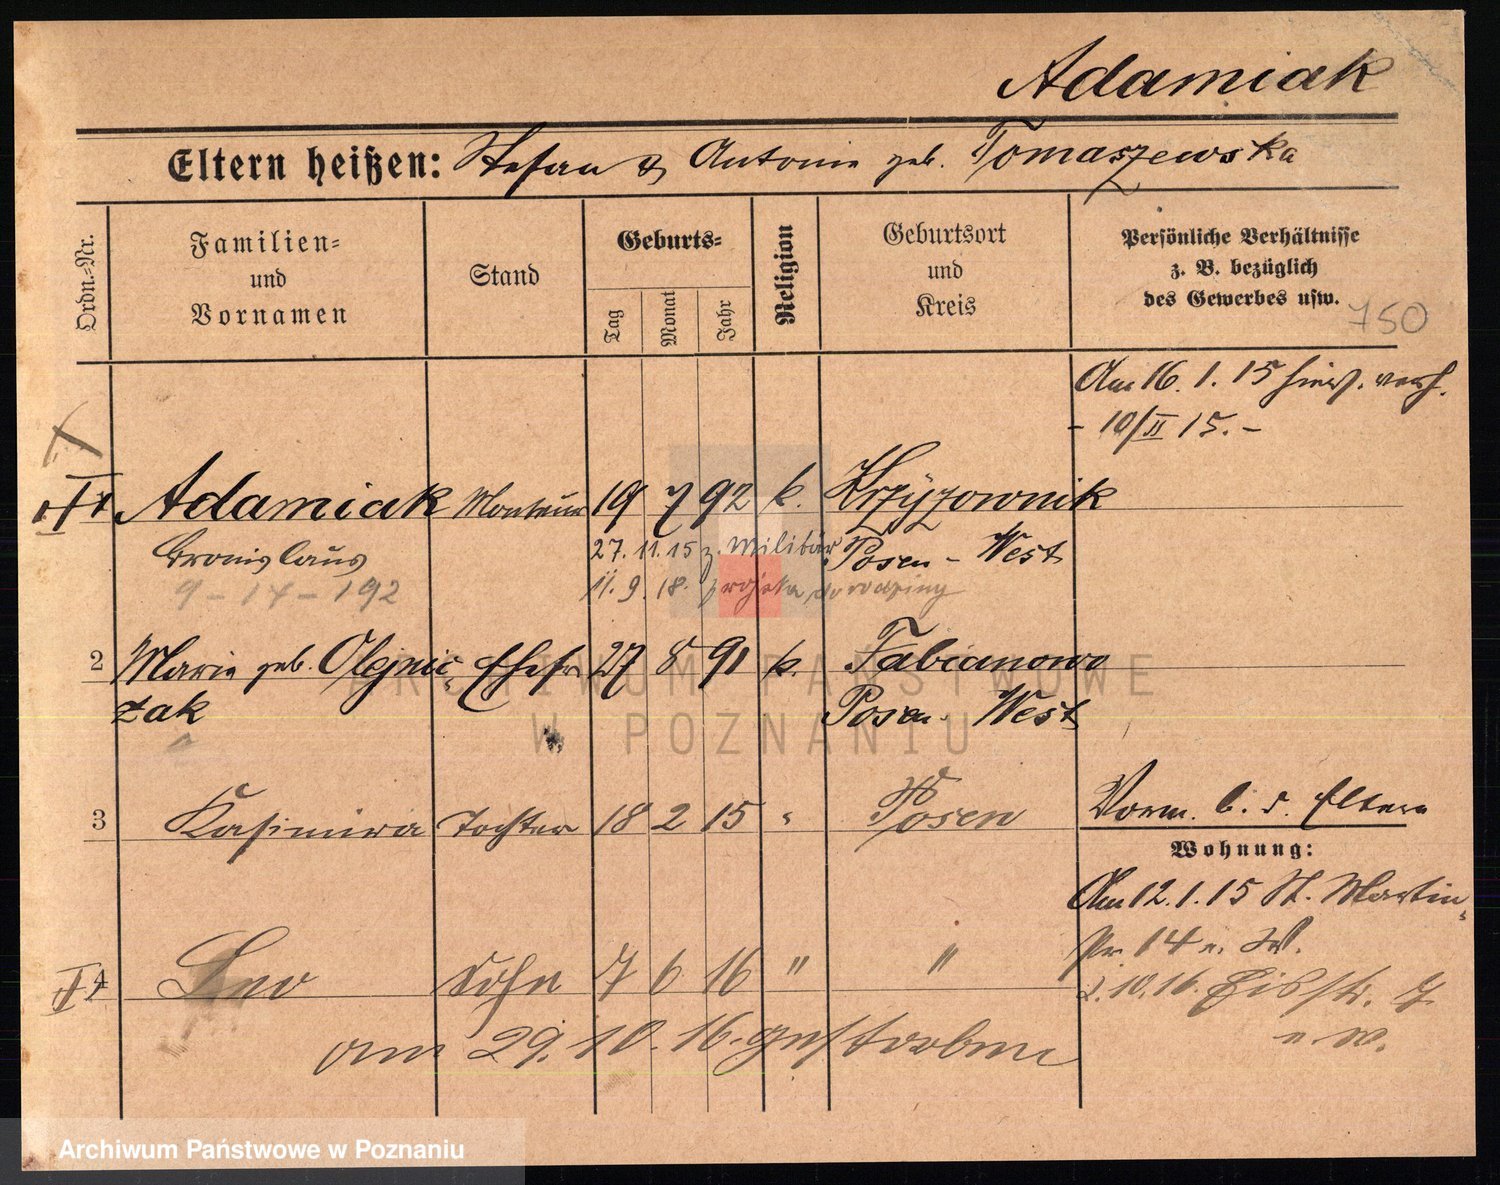 Adamiak
Eltern heißen: Stefan & Antonie geb. Tomaszewska
Ordn.-Nr.
Familien-
und
Vornamen
Stand
Geburts-
Tag
Monat
Jahr
Religion
Geburtsort
und
Kreis
Persönliche Verhältnisse
z. B. bezüglich
des Gewerbes usw.
750
Am 16. 1. 15 hier. verh.
- 10/II 15. -
1 Adamiak Monteur 19 7 92 k. Krzyżownik
Bronislaus 27. 11. 15 z. Militär Posen - West
9 - 14 - 192 11. 9. 18.
2 Marie geb. Olejnic- Ehefr 27 8 91 k. Fabianowo
zak Posen - West
3 Kasimira Tochter 18 2 15 " Posen
Vorm. b. d. Eltern
Wohnung:
Am 12. 1. 15 St. Martin-
str 14 n. W.
4 Leo Sohn 7 6 16 " "
2. 10. 16. 7
n. W.
am 29. 10. 16. gestorben
ARCHIWUM PAŃSTWOWE
W POZNANIU
Archiwum Państwowe w Poznaniu